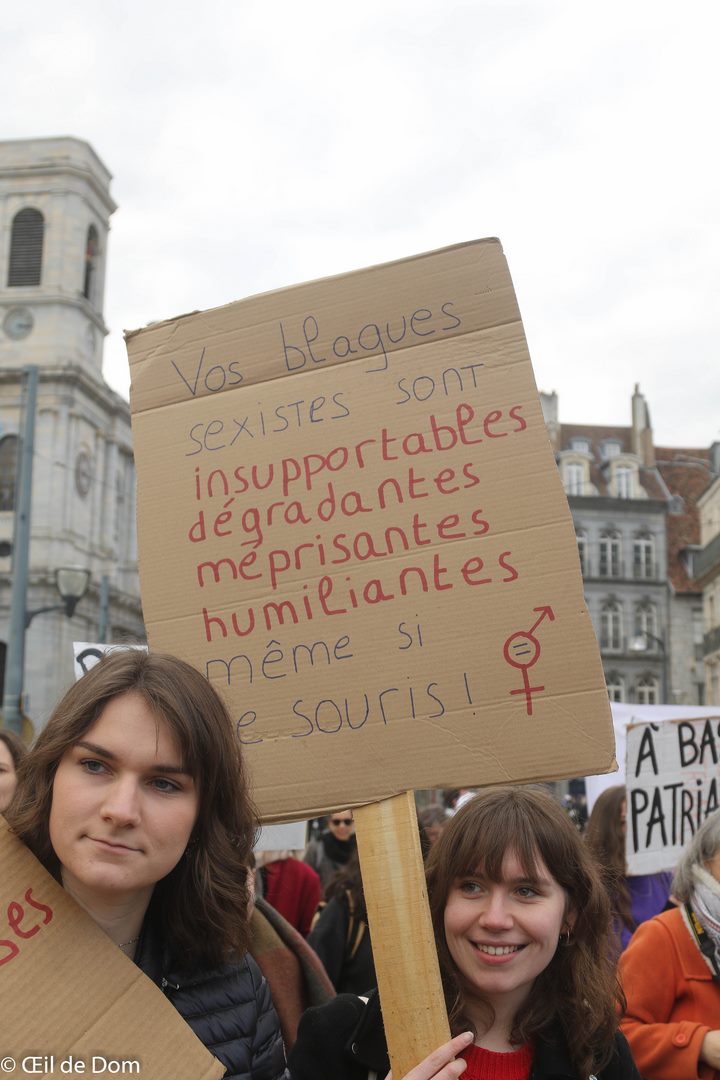 Vos blagues
sexistes sont
insupportables
dégradantes
méprisantes
humiliantes
même si
souris !
À BAS
PATRIA
© Œil de Dom